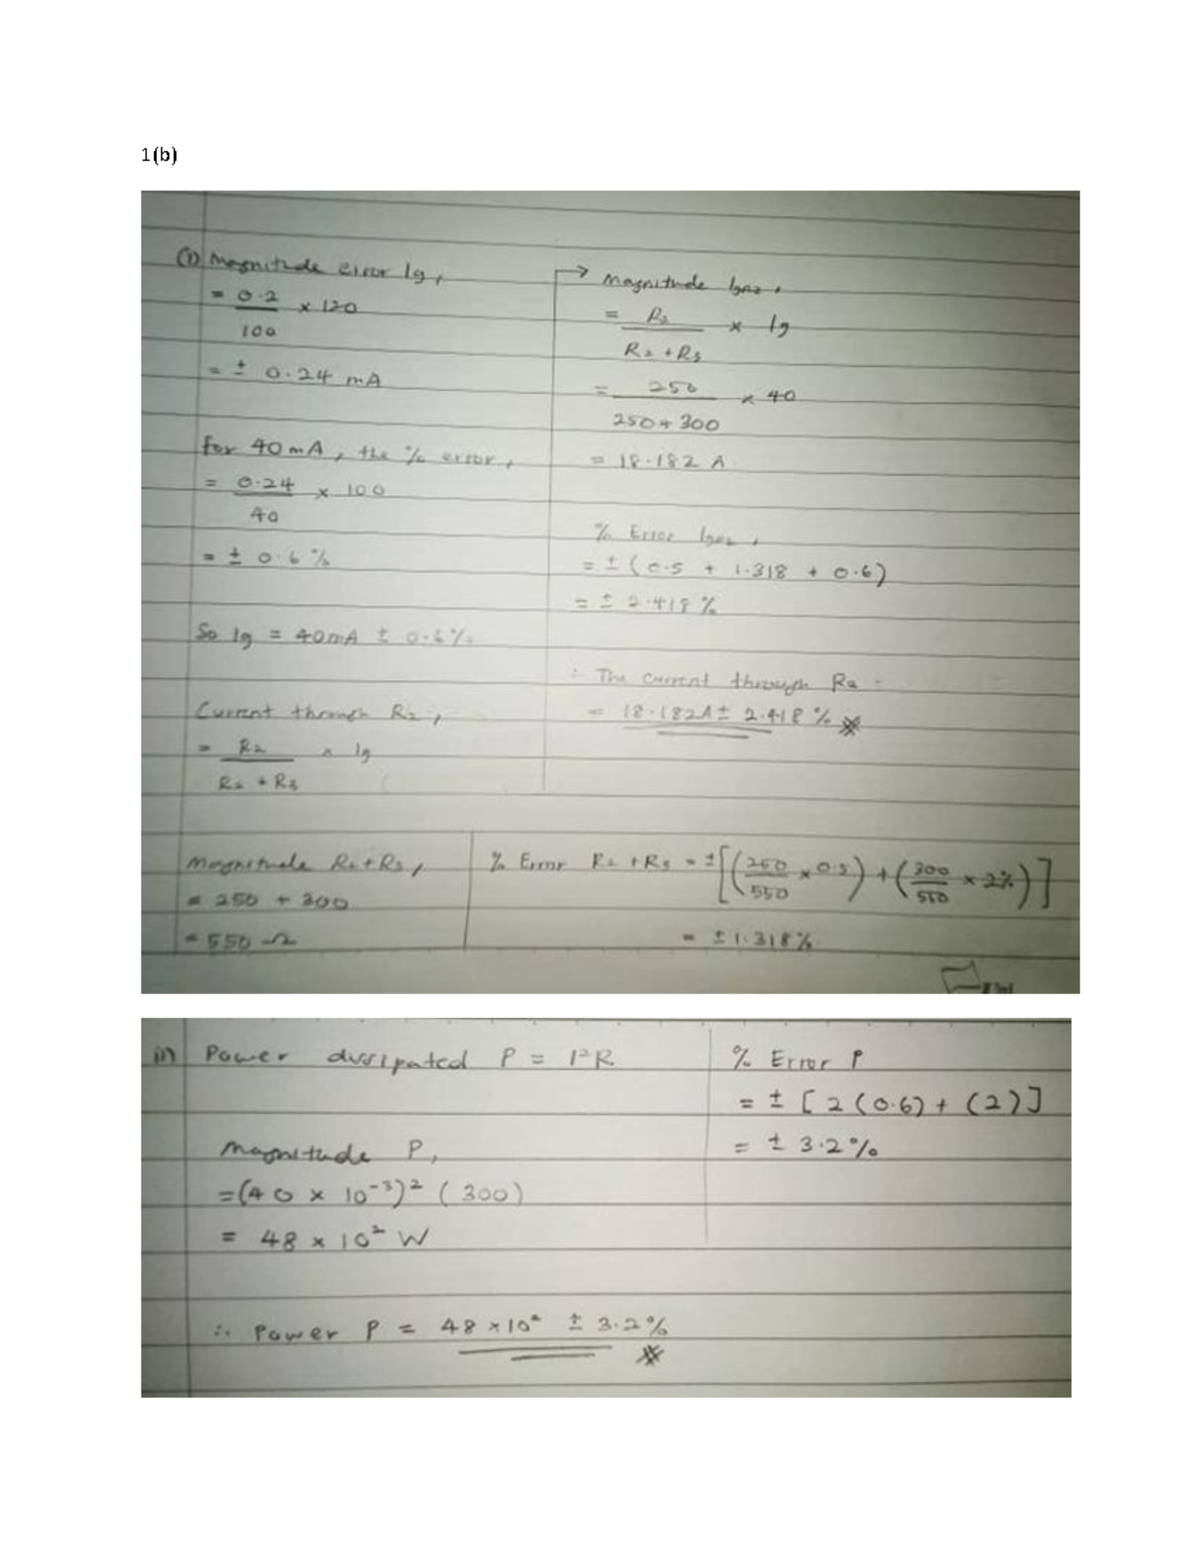 1(b)
(i) Magnitude error Ig,
= 0.2 / 100 × 120
= ± 0.24 mA
for 40 mA, the % error,
= 0.24 / 40 × 100
= ± 0.6 %
So Ig = 40mA ± 0.6%
Current through R2,
= R2 / R2 + R3 × Ig
→ Magnitude
= R2 / R2 + R3 × Ig
= 250 / 250 + 300 × 40
= 18.182 A
% Error
= ± (0.5 + 1.318 + 0.6)
= ± 2.418 %
∴ The current through R2
= 18.182A ± 2.418 %
Magnitude R2 + R3,
= 250 + 300
= 550 Ω
% Error R2 + R3 = ± [(250/550 × 0.5) + (300/550 × 2%)]
= ± 1.318%
ii) Power dissipated P = I²R
Magnitude P,
= (40 × 10⁻³)² (300)
= 48 × 10² W
% Error P
= ± [2(0.6) + (2)]
= ± 3.2%
∴ Power P = 48 × 10² ± 3.2%